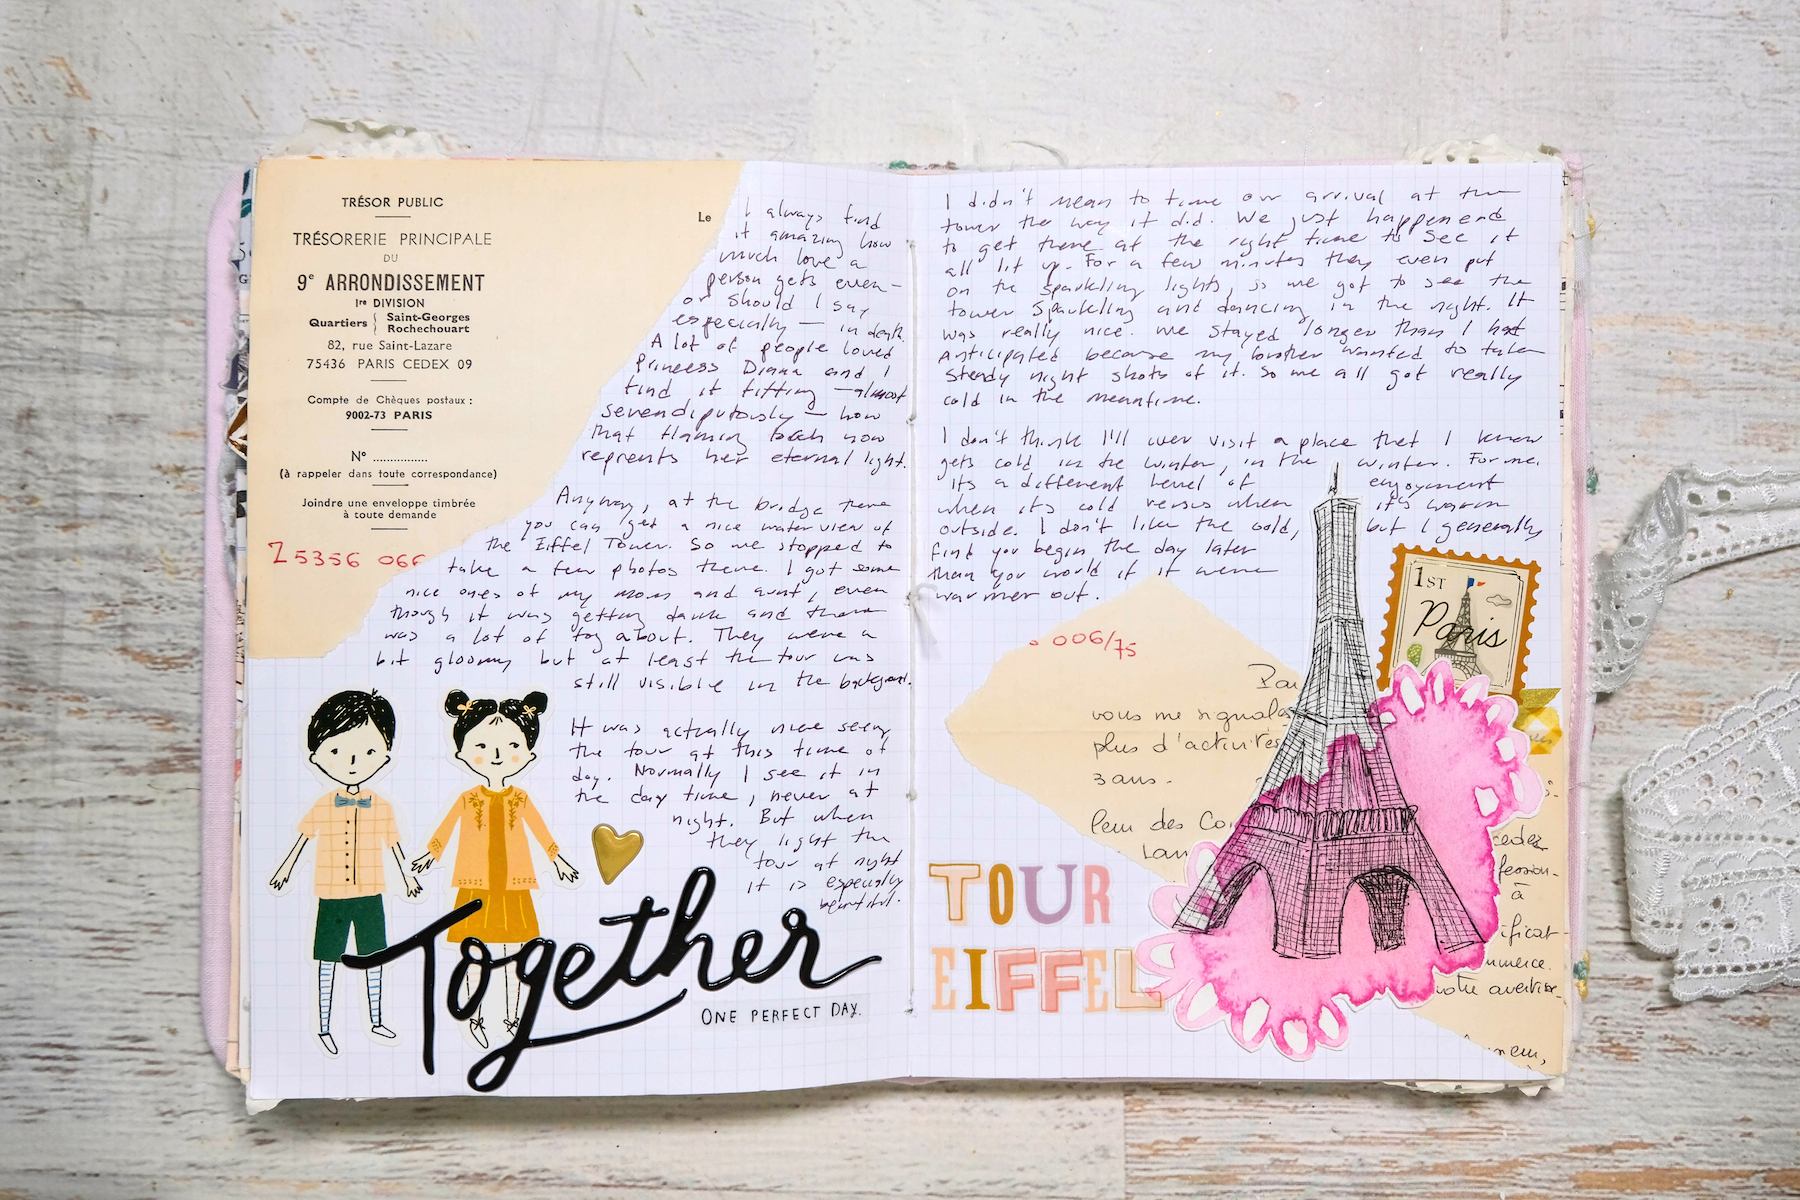 TRÉSOR PUBLIC
TRÉSORERIE PRINCIPALE
DU
9e ARRONDISSEMENT
1re DIVISION
Quartiers { Saint-Georges
Rochechouart
82, rue Saint-Lazare
75436 PARIS CEDEX 09
Compte de Chèques postaux :
9002-73 PARIS
N° ...............
(à rappeler dans toute correspondance)
Joindre une enveloppe timbrée
à toute demande
Z5356 066
Le
I always find
it amazing how
much love a
person gets even-
or should I say
especially — in death.
A lot of people loved
Princess Diana and I
find it fitting —almost
serendiputously — how
that flaming torch now
reprents her eternal light.
Anyway, at the bridge there
you can get a nice water view of
the Eiffel Tower. So we stopped to
take a few photos there. I got some
nice ones of my mom and aunt, even
though it was getting dark and there
was a lot of fog about. They were a
bit gloomy but at least the tour was
still visible in the background.
It was actually nice seeing
the tour at this time of
day. Normally I see it in
the day time, never at
night. But when
they light the
tour at night
it is especially
beautiful.
Together
ONE PERFECT DAY.
I didn't mean to time our arrival at the
tower the way it did. We just happened
to get there at the right time to see it
all lit up. For a few minutes they even put
on the sparkling lights, so we got to see the
tower sparkling and dancing in the night. It
was really nice. We stayed longer than I had
anticipated because my brother wanted to take
steady night shots of it. So we all got really
cold in the meantime.
I don't think I'll ever visit a place that I know
gets cold in the winter, in the winter. For me,
its a different level of enjoyment
when it's cold versus when it's warm
outside. I don't like the cold, but I generally
find you begin the day later
than you would if it were
warmer out.
006/75
vous me signalez
plus d'activités
3 ans.
Peu des
TOUR
EIFFEL
1ST
Paris
à